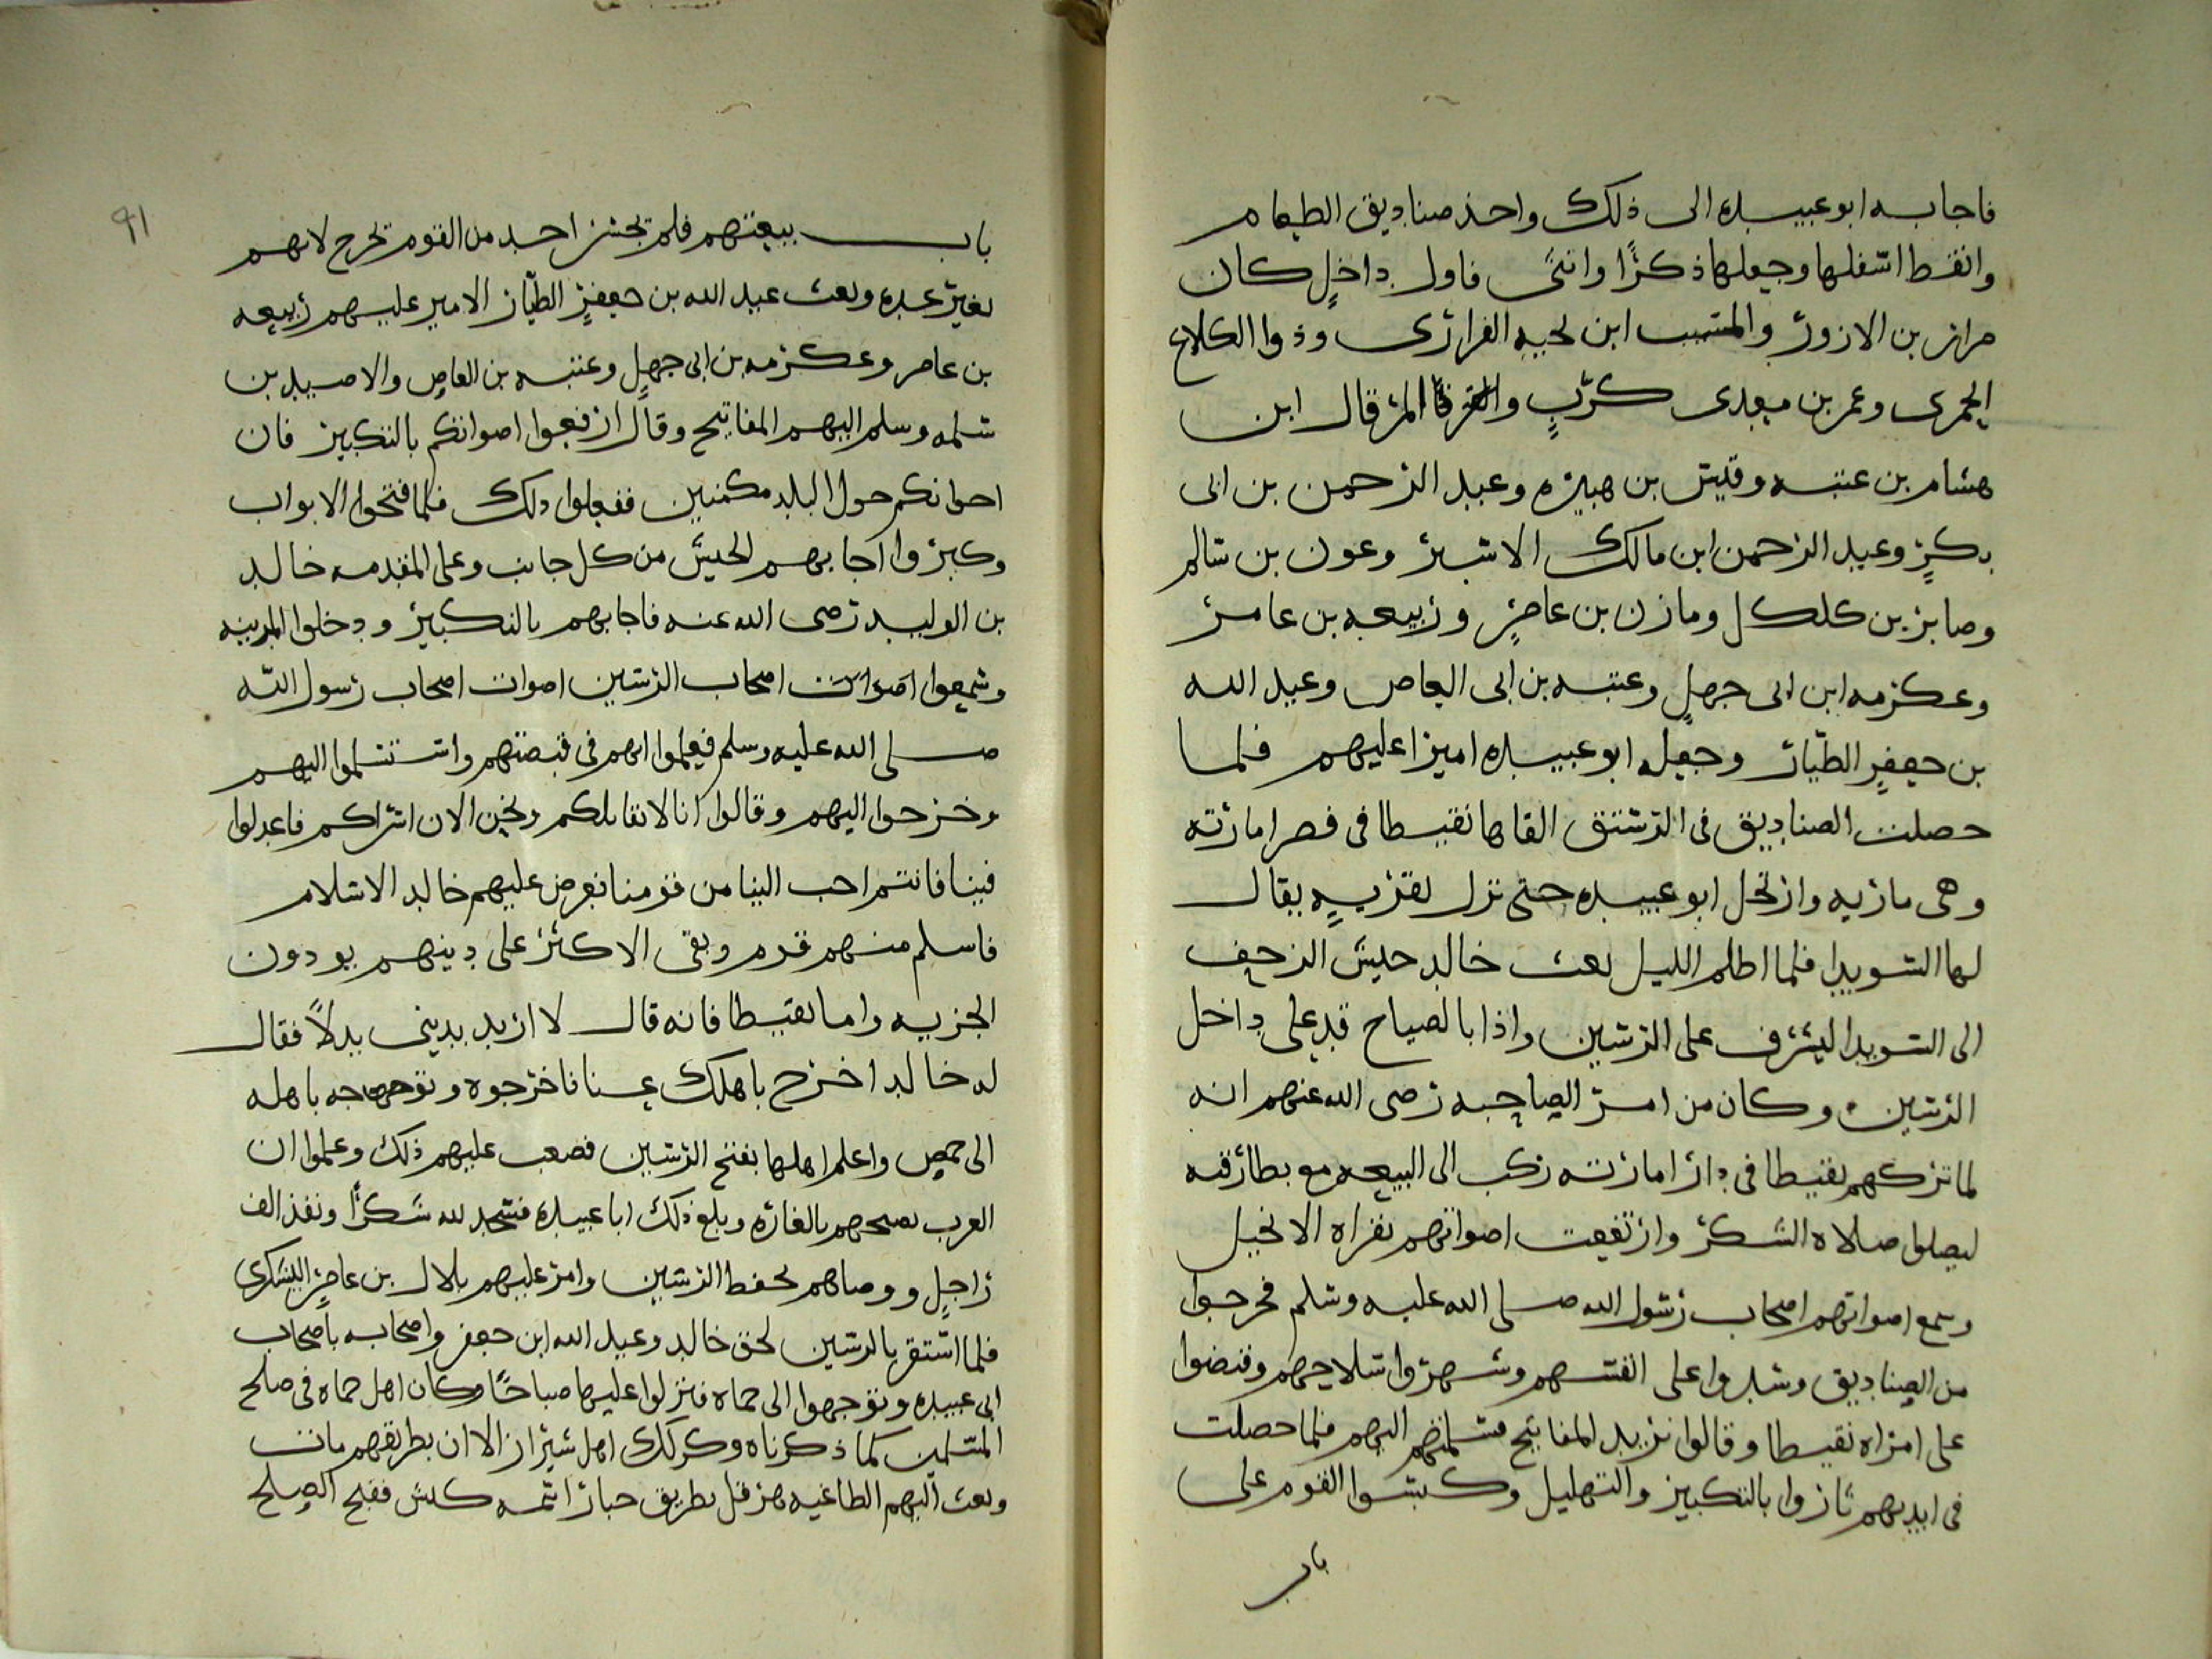 فاجابه ابو عبيده الى ذلك واخذ صناديق الطعام
واقفط اسفلها وجعلها ذكرًا وانثى فاول داخلٍ كان
ضرار بن الازور والمسيب ابن نجيه الفزارى وذوا الكلاع
الحمرى وعمر بن معدى كربٍ والمرقال ابن
هشام بن عتبه وقيس بن هبيره وعبد الرحمن بن ابى
بكرٍ وعبد الرحمن ابن مالك الاشتر وعون بن سالم
وصابر بن كلكل ومازن بن عامرٍ وربيعه بن عامر
وعكرمه ابن ابى جهلٍ وعتبه بن ابى العاص وعبد الله
بن جعفرٍ الطيّار وجعل ابو عبيده اميرا عليهم فلما
حصلت الصناديق فى الرستن القاها نقيطا فى قصر امارته
وهى ماريه وارتحل ابو عبيده حتى نزل بقريهٍ يقال
لها السويدا فلما اظلم الليل بعث خالد جيش الزحف
الى السويدا ليشرف على الرستن واذا بالصياح قد على داخل
الرستن وكان من امر الصاحبه رضى الله عنهم انه
لما تركهم نقيطا فى دار امارته ركب الى البيعه مع بطارقته
ليصلوا صلاه الشكر وارتفعت اصواتهم بقراه الانجيل
وسمع اصواتهم اصحاب رسول الله صلى الله عليه وسلم فخرجوا
من الصناديق وشدوا على انفسهم وشهروا سلاحهم وقبضوا
على امراه نقيطا وقالوا نريد المفاتيح فسلمتهم اليهم فلما حصلت
فى ايديهم ثاروا بالتكبير والتهليل وكبسوا القوم على
باب
٩١
باب بيعتهم فلم يجسر احد من القوم يخرج لانهم
بغير عده وبعث عبد الله بن جعفرٍ الطيّار الامير عليهم ربيعه
بن عامر وعكرمه بن ابى جهلٍ وعتبه بن العاص والاصيد بن
سلمه وسلم اليهم المفاتيح وقال ارفعوا اصواتكم بالتكبير فان
اخوانكم حول البلد مكمنين ففعلوا ذلك فلما فتحوا الابواب
وكبروا اجابهم الجيش من كل جانب وعلى المقدمه خالد
بن الوليد رضى الله عنه فاجابهم بالتكبير ودخلوا المدينه
وسمعوا اصوات اصحاب الرستن اصوات اصحاب رسول الله
صلى الله عليه وسلم فعلموا انهم فى قبضتهم واستسلموا اليهم
وخرجوا اليهم وقالوا انا لا نقاتلكم ونحن الان اسراكم فاعدلوا
فينا فانتم احب الينا من قومنا فعرض عليهم خالد الاسلام
فاسلم منهم قدم وبقى الاكثر على دينهم يودون
الجزيه واما نقيطا فانه قال لا اريد بدينى بدلاً فقال
له خالد اخرج باهلك عنا فاخرجوه وتوجه باهله
الى حمص واعلم اهلها بفتح الرستن فصعب عليهم ذلك وعلموا ان
العرب تصبحهم بالغاره وبلغ ذلك ابا عبيده فسجد لله شكرًا ونفذ الف
راجلٍ ووصاهم بحفظ الرستن وامر عليهم بلال بن عامرٍ اليشكرى
فلما استقر بالرستن لحق خالد وعبد الله ابن جعفر واصحابه باصحاب
ابى عبيده وتوجهوا الى حماه فنزلوا عليها صباحًا وكان اهل حماه فى صلح
المسلمين كما ذكرناه وكذلك اهل شيزر الا ان بطريقهم مات
وبعث اليهم الطاغيه هرقل بطريق جبار اسمه كلس ففتح الصلح